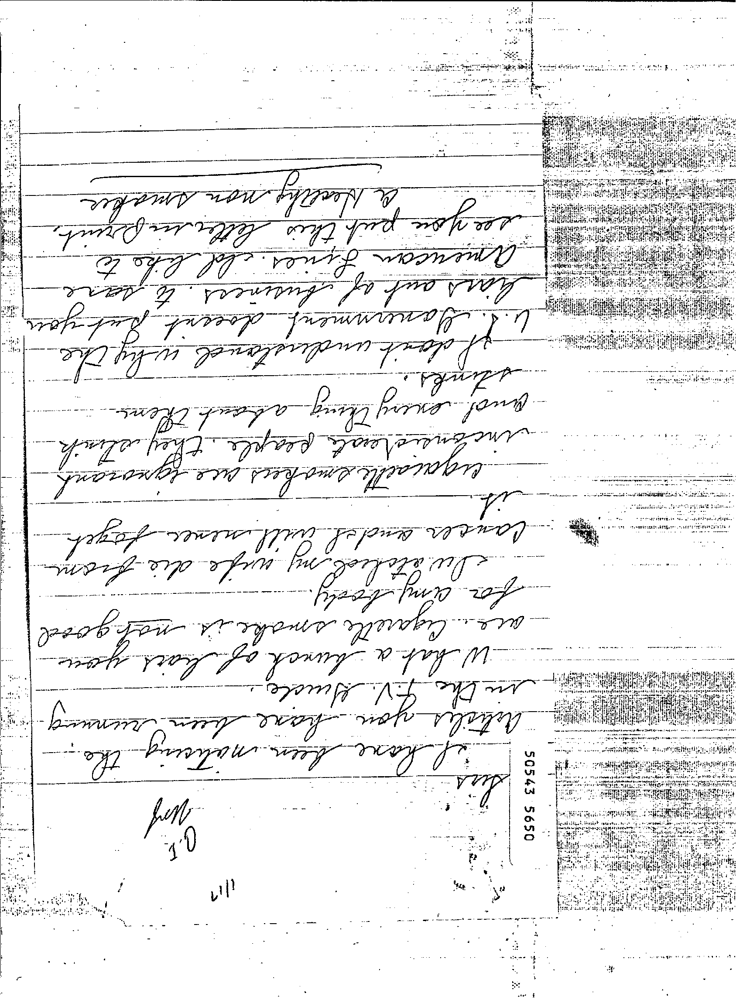 1/17
Sirs
I have been noticing the
Articles you have been running
in the T.V. Guide.
What a bunch of liars you
are. Cigarette smoke is not good
for any body.
I watched my wife die from
Cancer and I will never forget
it.
Cigarette smokers are ignorant
inconsiderate people. they stink
and every thing about them
stinks.
I don't understand why the
U.S. Government doesnt put you
liars out of business. to save
American Lives. Id like to
see you put this letter in print.
A Healthy non smoker
50543 5650